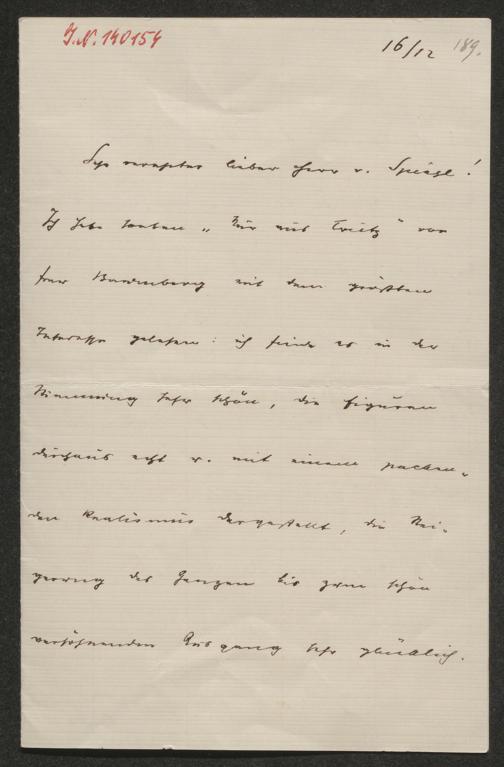 J.N. 140154
16/12 189.
Sehr verehrter lieber Herr v. Spiegl!
Ich habe soeben „Nur aus Trutz“ von
Frau Bardenberg mit dem größten
Interesse gelesen: ich finde es in der
Stimmung sehr schön, die Figuren
durchaus echt u. mit einem packen-
den Realismus dargestellt, die Stei-
gerung des Ganzen bis zum schön
versöhnenden Ausgang sehr glücklich.